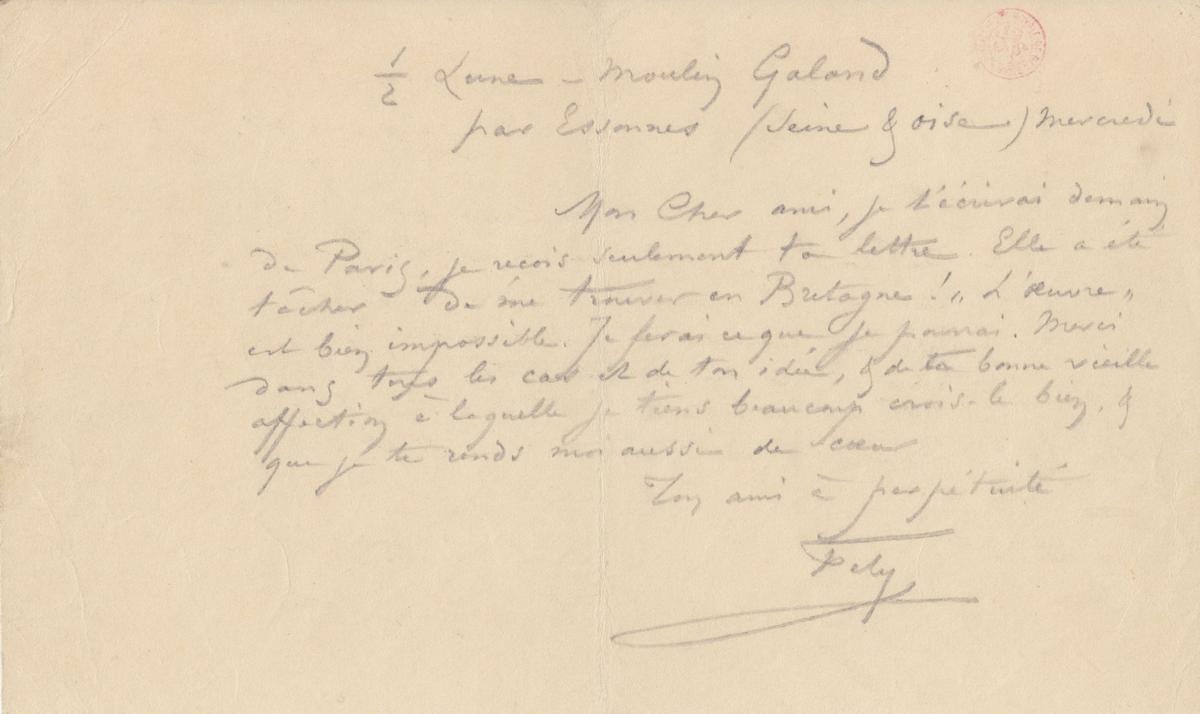 1/2 Lune – Moulin Galand
par Essonnes (Seine & oise) Mercredi
Mon Cher ami, je t'écrirai demain
de Paris, je reçois seulement ta lettre. Elle a été
tâcher de me trouver en Bretagne ! „ L'œuvre „
est bien impossible. Je ferai ce que je pourrai. Merci
dans tous les cas et de ton idée, & de ta bonne vieille
affection à laquelle je tiens beaucoup crois-le bien, &
que je te rends moi aussi de cœur
Ton ami à perpétuité
Fely